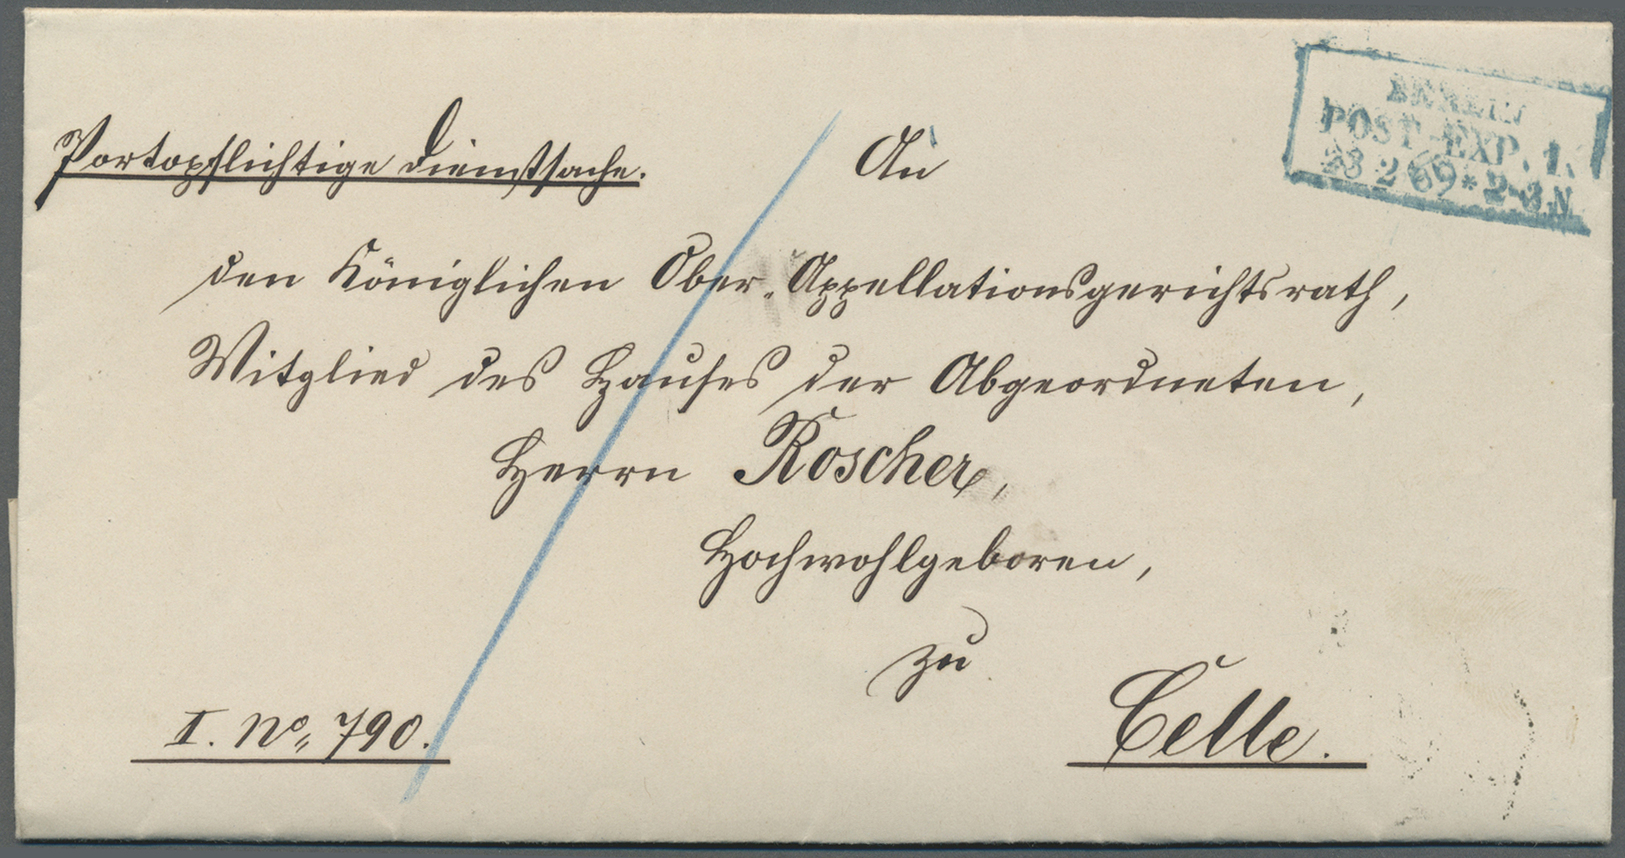 BERLIN
POST-EXP. 1.
23 2 69 * 2-3 N
Portopflichtige Dienstsache.
An
den Königlichen Ober-Appellationsgerichtsrath,
Mitglied des Hauses der Abgeordneten,
Herrn Roscher,
Hochwohlgeboren,
zu
Celle.
I. No. 790.